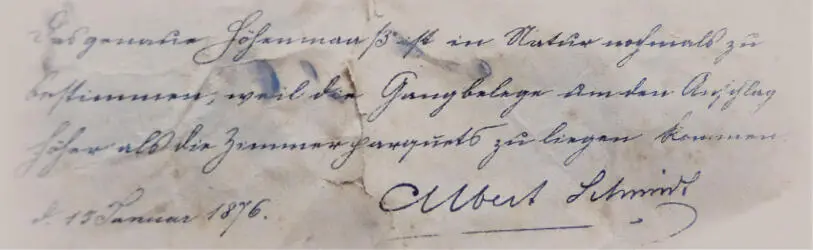 Das genaue Höhenmaaß ist in Natur nochmals zu
bestimmen, weil die Gangbelege um den Anschlag
höher als die Zimmerparquets zu liegen kommen.
d. 15 Januar 1876.
Albert Schmidt